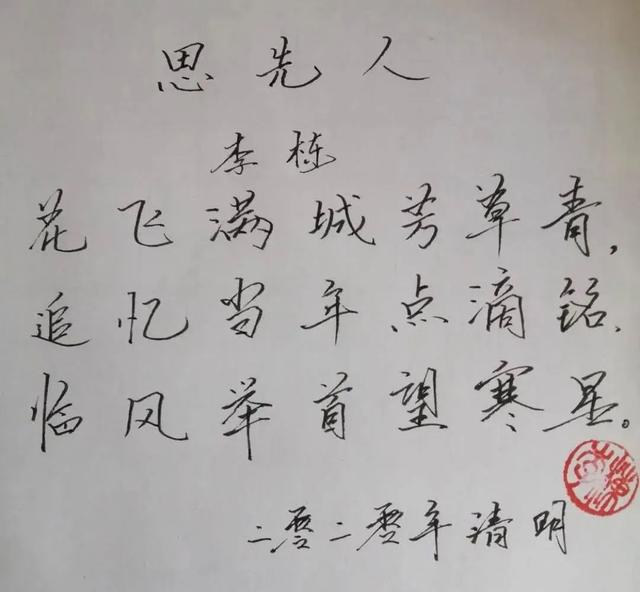 思先人
李栋
花飞满城芳草青，
追忆当年点滴铭，
临风举首望寒星。
二零二零年清明